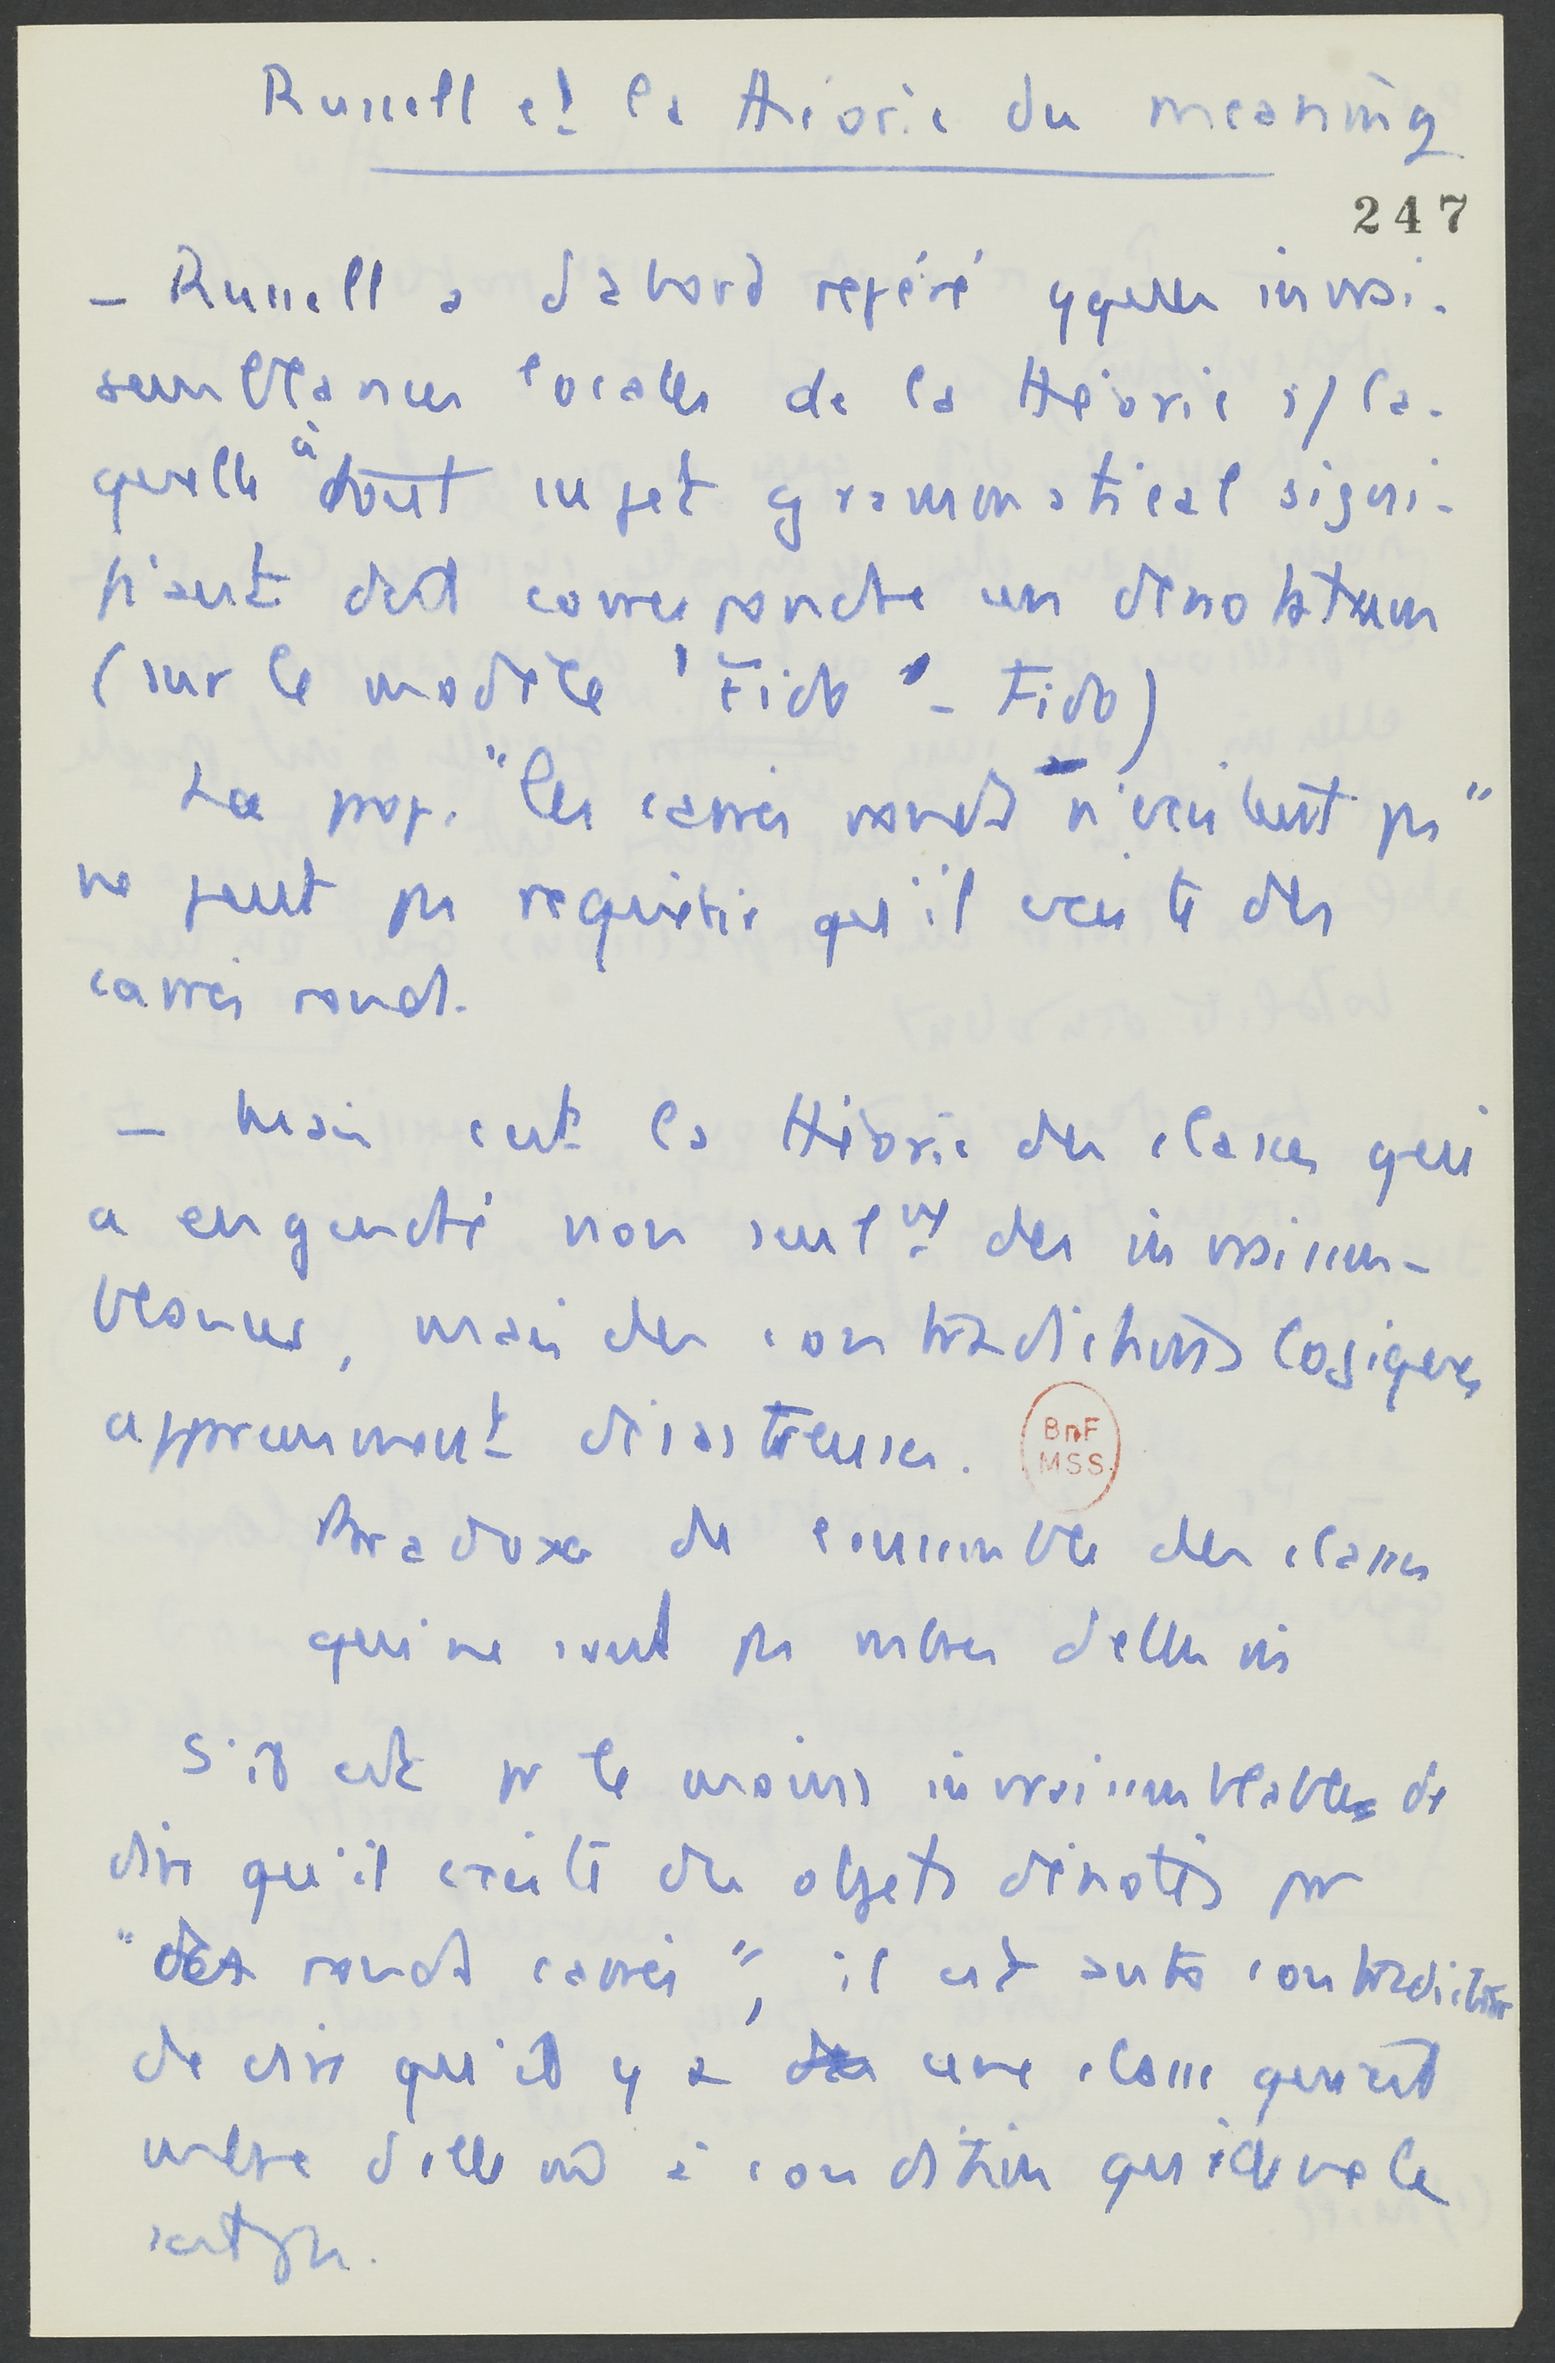 Russell et la théorie du meaning
247
– Russell a d'abord repéré qques invrai-
semblances locales de la théorie s/ la-
quelle à tout sujet grammatical signi-
fiant doit correspondre un denotatum
(sur le modèle 'Fido' – Fido)
La prop. "les carrés ronds n'existent pas"
ne peut pas requérir qu'il existe des
carrés ronds.
– Mais c'est la théorie des classes qui
a engendré non seulmt des invraisem-
blances, mais des contradictions logiques
apparemment désastreuses.
Paradoxe de l'ensemble des classes
qui ne sont pas mbres d'elles m
S'il est pr le moins invraisemblable de
dire qu'il existe des objets dénotés par
"des ronds carrés", il est auto contradictoire
de dire qu'il y a des une classe qui est
mbre d'elle m à condition qu'elle ne le
soit pas.
BnF
MSS